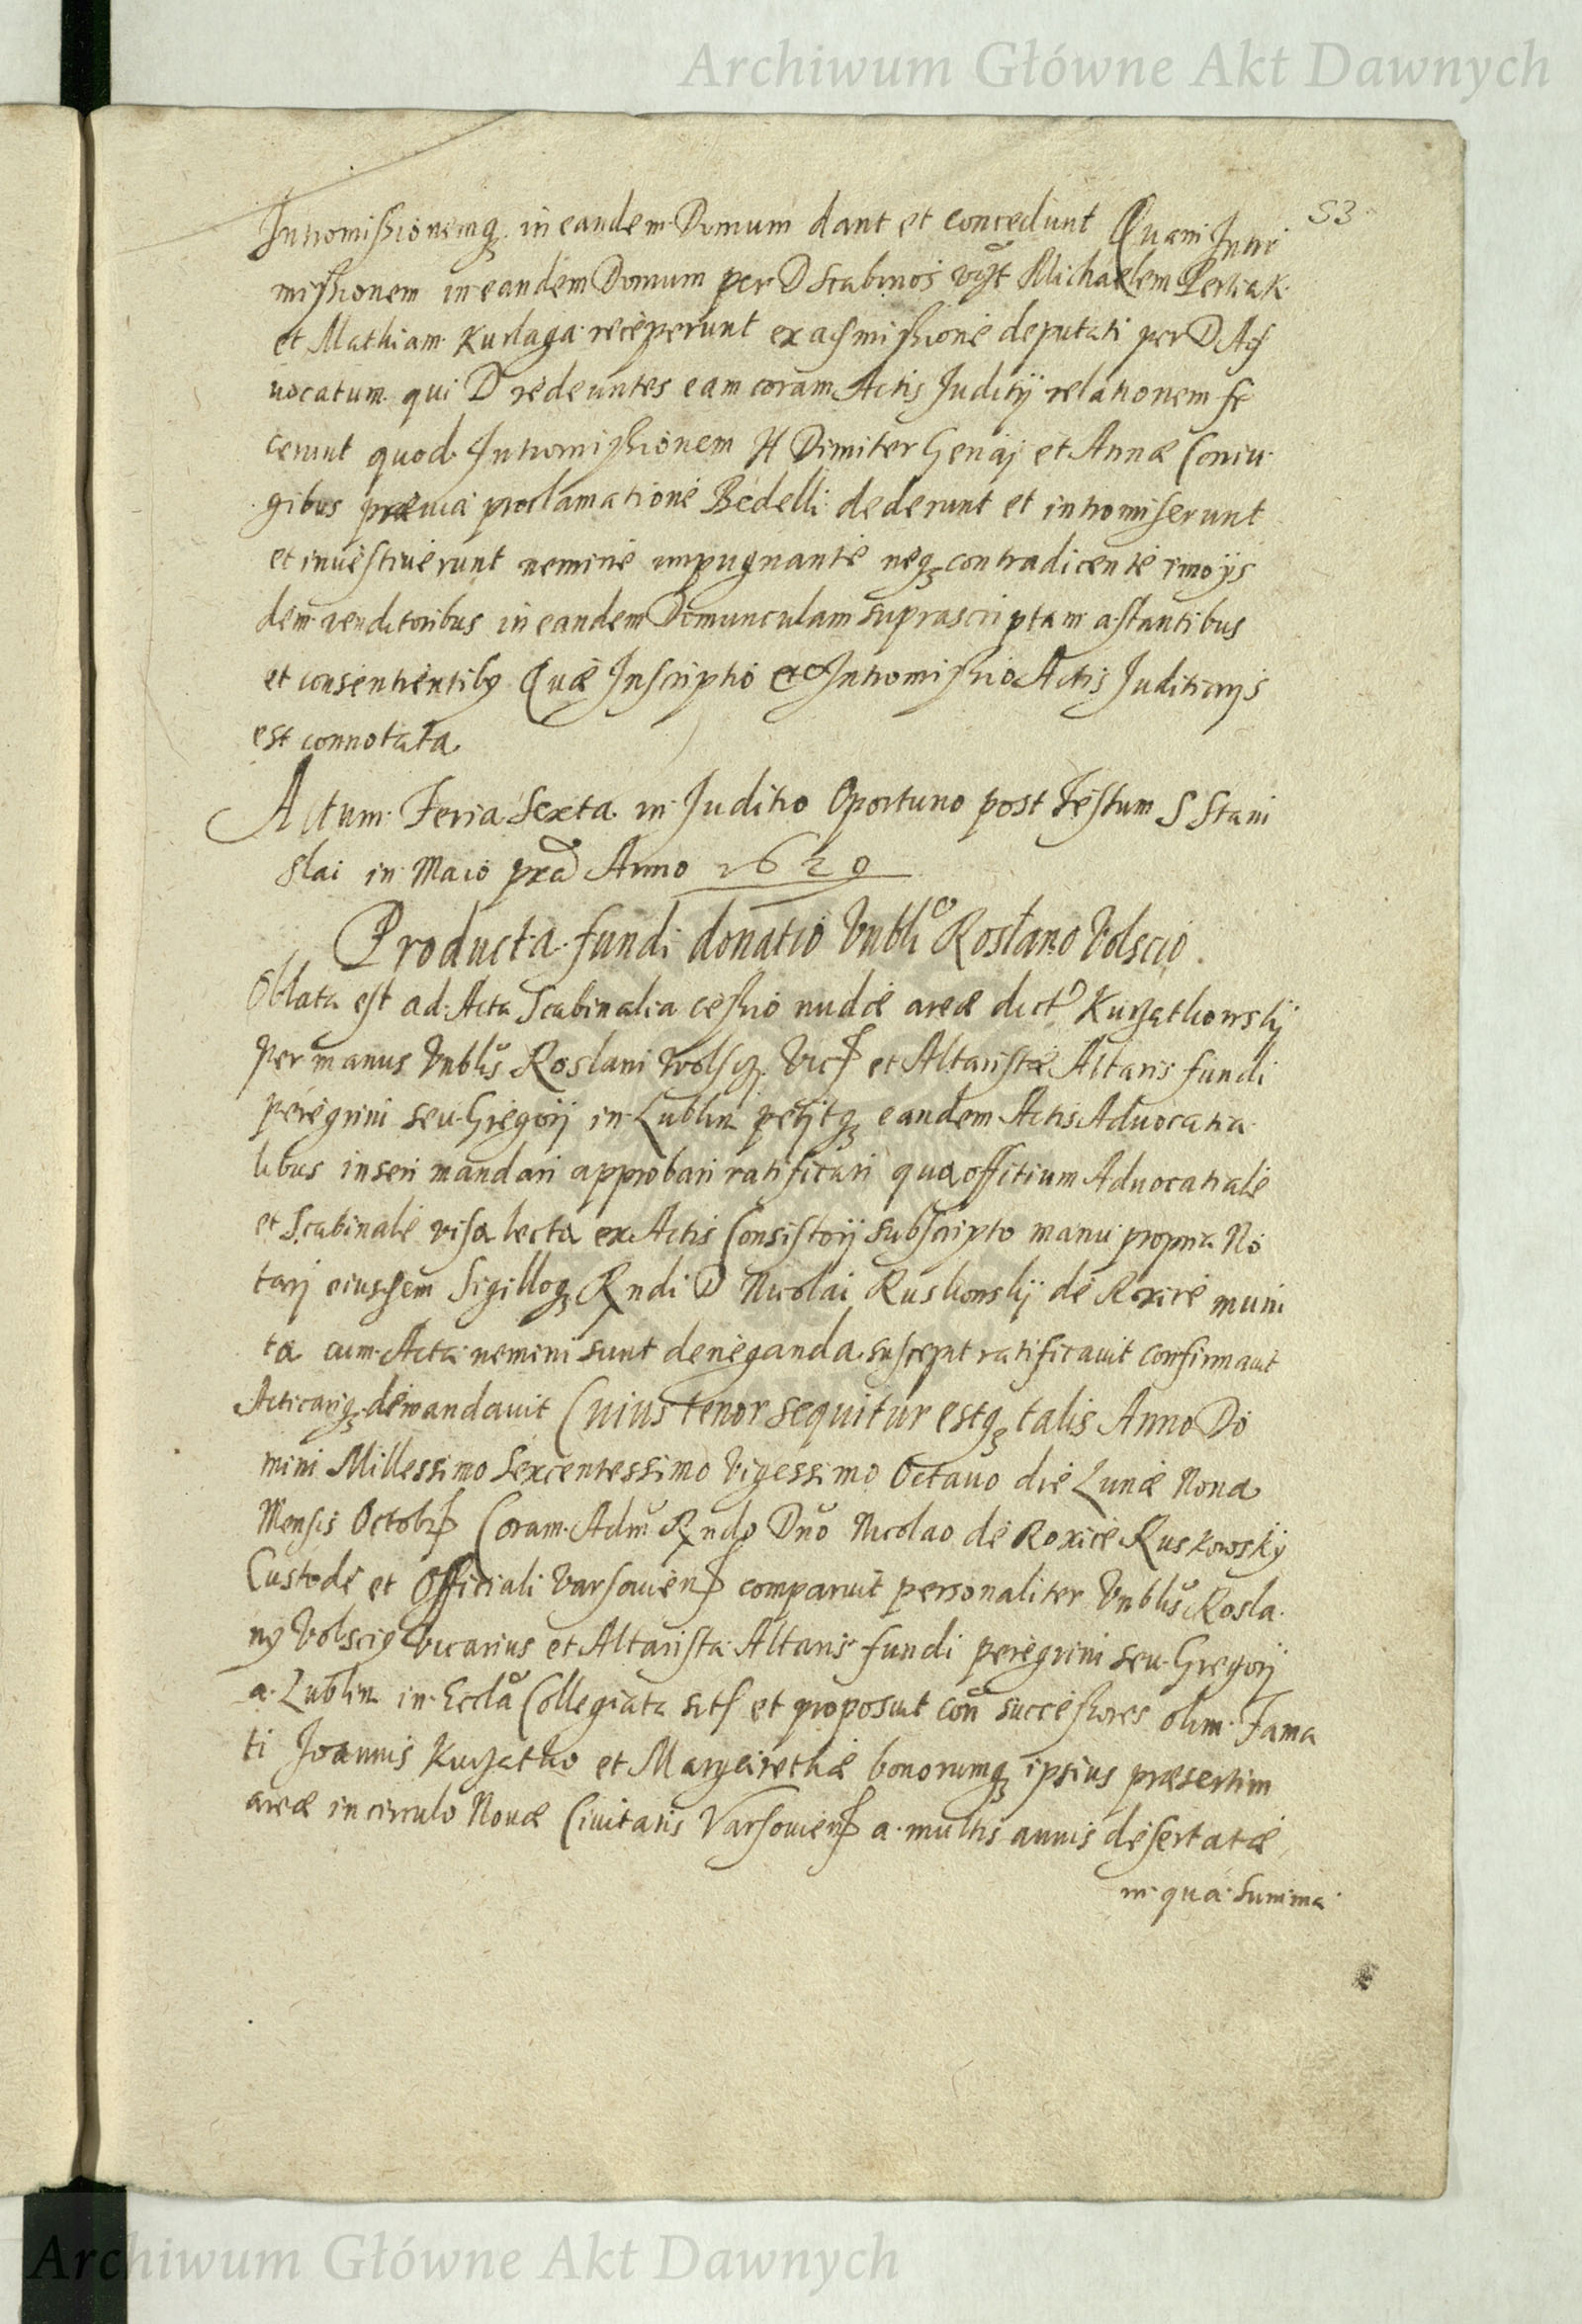 Archiwum Główne Akt Dawnych
53
Intromissionemq3 in eandem Domum dant et concedunt Quam Intro
missionem in eandem Domum per D Scabinos vist Michaelem Perliak
et Mathiam Kurlaga receperunt ex admissione deputati per D Ad
uocatum qui D redeuntes eam coram Actis Juditij relationem fe
cerunt quod Intromissionem H Dimiter et Annæ Coniu
gibus præuia proclamatione Bedelli dederunt et intromiserunt
et inuestiuerunt nemine impugnante neq3 contradicente imo ijs
dem venditoribus in eandem Domunculam suprascriptam astantibus
et consentientiby Quæ Inscriptio et Intromissio Actis Juditiarijs
est connotata
Actum Feria Sexta in Juditio Oportuno post Festum S Stani
slai in Maio præd Anno 1629
Producta fundi donatio Vnbli Roslano Volscio
Oblata est ad Acta Scabinalia cessio nudæ areæ dict Kurzathowskij
Per manus Vnblis Roslani Wolscy Vic et Altaristæ Altaris fundi
peregrini seu Gregorij in Lublin petijtq3 eandem Actis Aduocatia
libus inseri mandari approbari ratificari qua offitium Aduocatiale
et Scabinale visa lecta ex Actis Consistorij subscripto manu propria No
tarij eiusdem Sigilloq3 Rndi D Nicolai Ruskowskij de Roxice muni
ta cum Acta nemini sunt deneganda suscepit ratificauit confirmauit
Acticariq3 demandauit Cuius tenor sequitur estq3 talis Anno Do
mini Millessimo Sexcentessimo Vigessimo Octauo die Lunæ Nona
Mensis Octobr Coram Adm Rndo Dno Nicolao de Roxice Ruskowsky
Custode et Officiali Varsouien comparuit personaliter Vnblis Rosla
ny Volsciy vicarius et Altarista Altaris fundi peregrini seu Gregorij
a Lublin in Eccla Collegiata sits et proposuit con successores olim Fama
ti Joannis Kurzatko et Margarethæ bonorumq3 ipsius præsertim
areæ in circulo Nouæ Ciuitatis Varsouien a multis annis desertatæ
in qua summa
Archiwum Główne Akt Dawnych